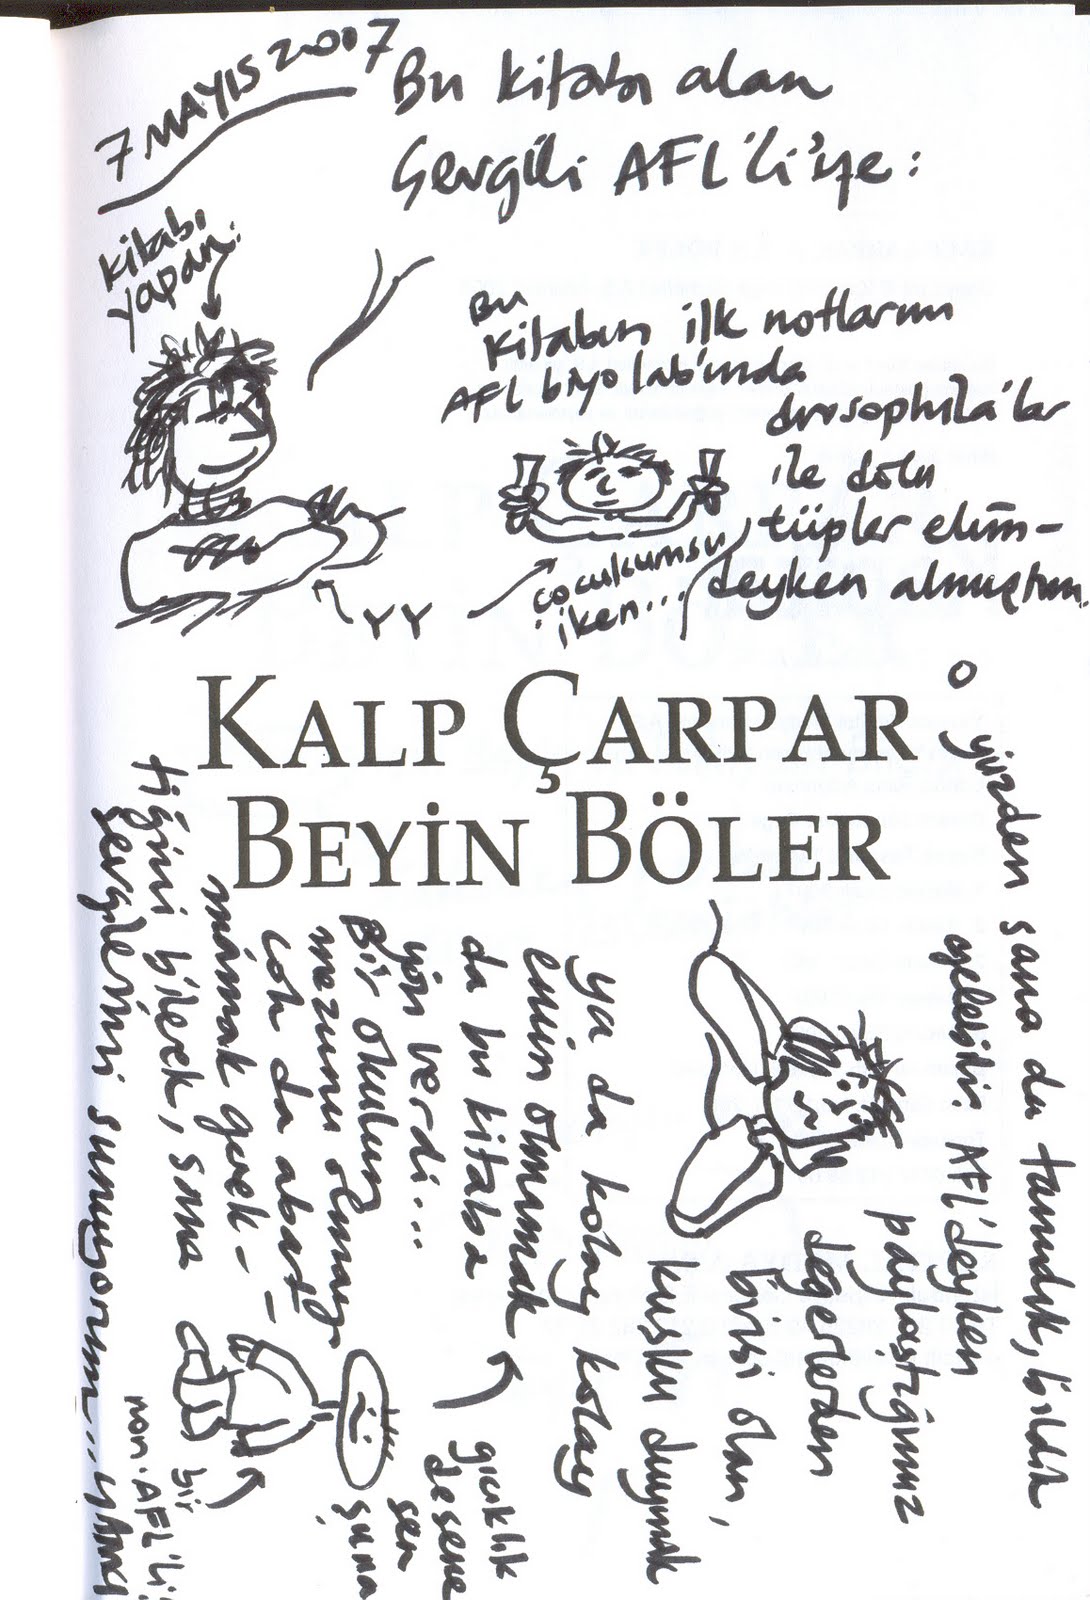 7 MAYIS 2007
Bu kitabı alan
Sevgili AFL'li'ye:
Kitabı
yapan:
YY
Bu
kitabın ilk notlarını
AFL biyo lab'ında
drosophila'lar
ile dolu
tüpler elim-
deyken almıştım.
çocukumsu
iken...
KALP ÇARPAR
BEYİN BÖLER
O yüzden sana da tanıdık, bildik
gelebilir. AFL'deyken
paylaştığımız
değerlerden
birisi olan,
kuşku duymak
ya da kolay kolay
emin olmamak
da bu kitaba
yön verdi...
gıcıklık
desene
sen
şuna
Bir okulun
mezunu olmayı
çok da abart-
mamak gerek-
tiğini bilerek, sana
sevgilerimi sunuyorum...
bir
non-AFL'li!